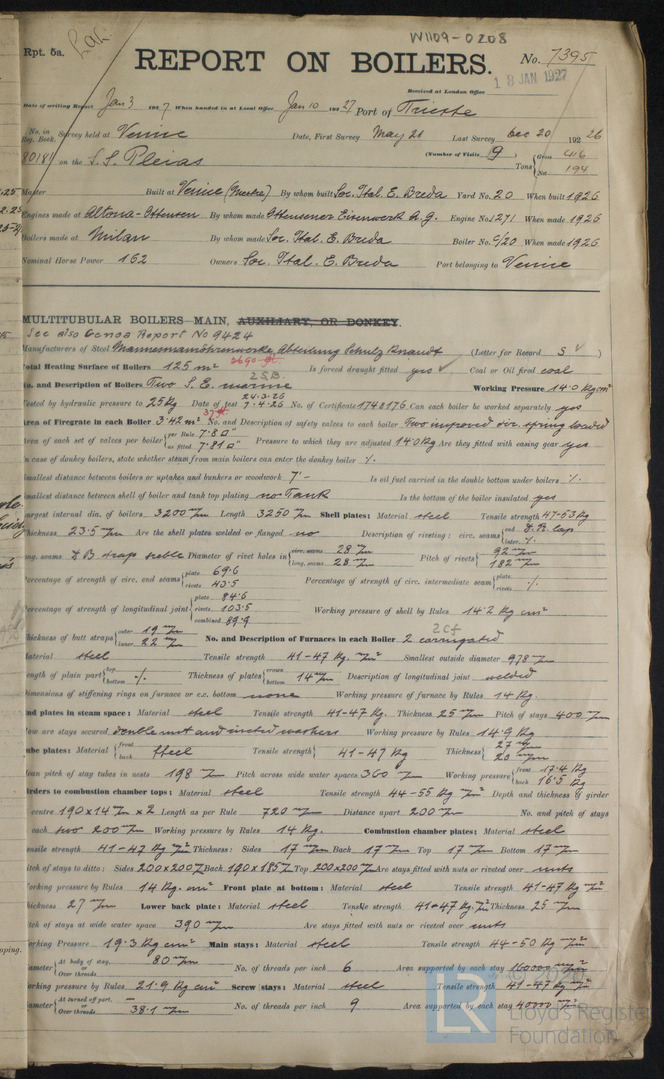 W1109-0208
Rpt. 5a.
REPORT ON BOILERS.
No. 7395
Received at London Office
18 JAN 1927
Date of writing Report Jan 3 1927 When handed in at Local Office Jan 10 1927 Port of Trieste
No. in Reg. Book. Survey held at Venice Date, First Survey May 21 Last Survey Dec 20 1926
80181 on the S.S. Pleias (Number of Visits 9) Tons Gross 416 Net 194
Master Built at Venice (Mestre) By whom built Soc. Ital. E. Breda Yard No. 20 When built 1926
Engines made at Altona-Ottensen By whom made Ottensener Eisenwerk A.G. Engine No. 1271 When made 1926
Boilers made at Milan By whom made Soc. Ital. E. Breda Boiler No. 6/20 When made 1926
Nominal Horse Power 162 Owners Soc. Ital. E. Breda Port belonging to Venice
MULTITUBULAR BOILERS MAIN, AUXILIARY, OR DONKEY.
See also Genoa Report No 9424
Manufacturers of Steel Mannesmannröhrenwerke Abteilung Schulz Knaudt (Letter for Record S)
Total Heating Surface of Boilers 125 m² Is forced draught fitted yes Coal or Oil fired coal
2SB
No. and Description of Boilers Two S.E. marine Working Pressure 14.0 Kg cm²
Tested by hydraulic pressure to 25 Kg Date of test 24-3-26 7-4-26 No. of Certificate 174 & 176 Can each boiler be worked separately yes
Area of Firegrate in each Boiler 3.42 m² No. and Description of safety valves to each boiler Two improved dir. spring loaded
Area of each set of valves per boiler per Rule 7.8 as fitted 7.81 Pressure to which they are adjusted 14.0 Kg Are they fitted with easing gear yes
In case of donkey boilers, state whether steam from main boilers can enter the donkey boiler ./.
Smallest distance between boilers or uptakes and bunkers or woodwork 7'- Is oil fuel carried in the double bottom under boilers ./.
Smallest distance between shell of boiler and tank top plating no Tank Is the bottom of the boiler insulated yes
Largest internal dia. of boilers 3200 m/m Length 3250 m/m Shell plates: Material steel Tensile strength 47-53 Kg
Thickness 23.5 m/m Are the shell plates welded or flanged no Description of riveting: circ. seams end D.R. lap inter. ./.
long. seams D B straps treble Diameter of rivet holes in circ. seams 28 m/m long. seams 28 m/m Pitch of rivets 92 m/m 182 m/m
Percentage of strength of circ. end seams plate 69.6 rivets 43.5 Percentage of strength of circ. intermediate seam plate rivets ./.
Percentage of strength of longitudinal joint plate 84.6 rivets 103.5 combined 89.9 Working pressure of shell by Rules 14.2 Kg cm²
Thickness of butt straps outer 19 m/m inner 22 m/m No. and Description of Furnaces in each Boiler 2 corrugated
2 cf
Material steel Tensile strength 41-47 Kg. m/m² Smallest outside diameter 978 m/m
Length of plain part top bottom ./. Thickness of plates crown bottom 14 m/m Description of longitudinal joint welded
Dimensions of stiffening rings on furnace or c.c. bottom none Working pressure of furnace by Rules 14 Kg.
End plates in steam space: Material steel Tensile strength 41-47 Kg. Thickness 25 m/m Pitch of stays 400 m/m
How are stays secured double nut and riveted washers Working pressure by Rules 14.9 Kg
Tube plates: Material front back Steel Tensile strength 41-47 Kg Thickness 27 m/m 20 m/m
Mean pitch of stay tubes in nests 198 m/m Pitch across wide water spaces 360 m/m Working pressure front 17.4 Kg back 16.5 Kg
Girders to combustion chamber tops: Material steel Tensile strength 44-55 Kg m/m² Depth and thickness of girder
at centre 190 x 14 m/m x 2 Length as per Rule 720 m/m Distance apart 200 m/m No. and pitch of stays
in each two 200 m/m Working pressure by Rules 14 Kg. Combustion chamber plates: Material steel
Tensile strength 41-47 Kg m/m² Thickness: Sides 17 m/m Back 17 m/m Top 17 m/m Bottom 17 m/m
Pitch of stays to ditto: Sides 200x200 m/m Back 190x185 m/m Top 200x200 m/m Are stays fitted with nuts or riveted over nuts
Working pressure by Rules 14 Kg. cm² Front plate at bottom: Material steel Tensile strength 41-47 Kg m/m²
Thickness 27 m/m Lower back plate: Material steel Tensile strength 41-47 Kg. m/m² Thickness 25 m/m
Pitch of stays at wide water space 390 m/m Are stays fitted with nuts or riveted over nuts
Working Pressure 19.3 Kg cm² Main stays: Material steel Tensile strength 44-50 Kg m/m²
Diameter At body of stay, or Over threads 80 m/m No. of threads per inch 6 Area supported by each stay 160000 m/m²
Working pressure by Rules 21.9 Kg cm² Screw stays: Material steel Tensile strength 41-47 Kg m/m²
Diameter At turned off part, or Over threads 38.1 m/m No. of threads per inch 9 Area supported by each stay 40000 m/m²
© 2020
LR Lloyd's Register
Foundation